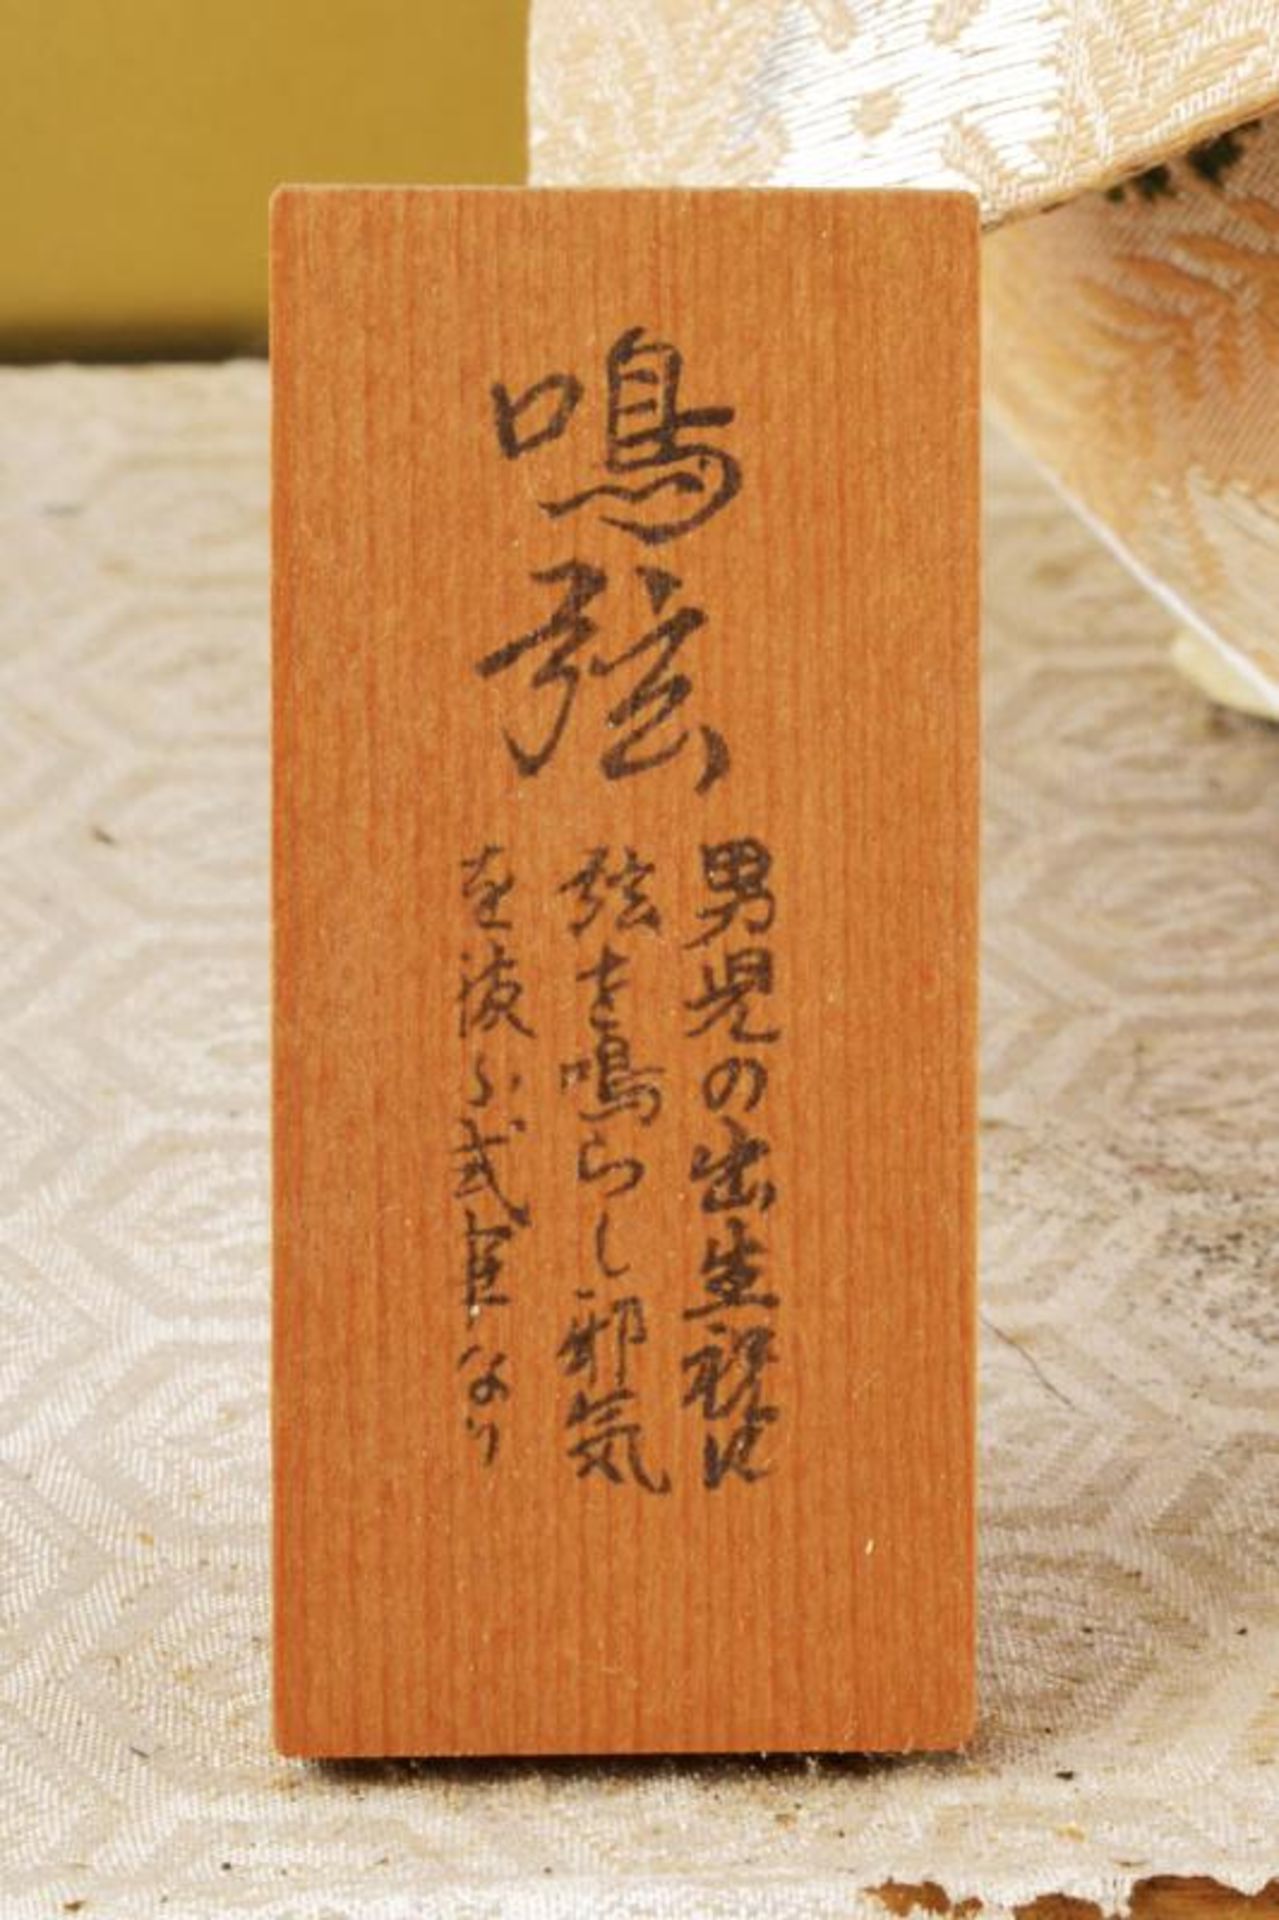 鳴弦
男児の出生祝に
弦を鳴らし邪気
を祓ふ武官なり